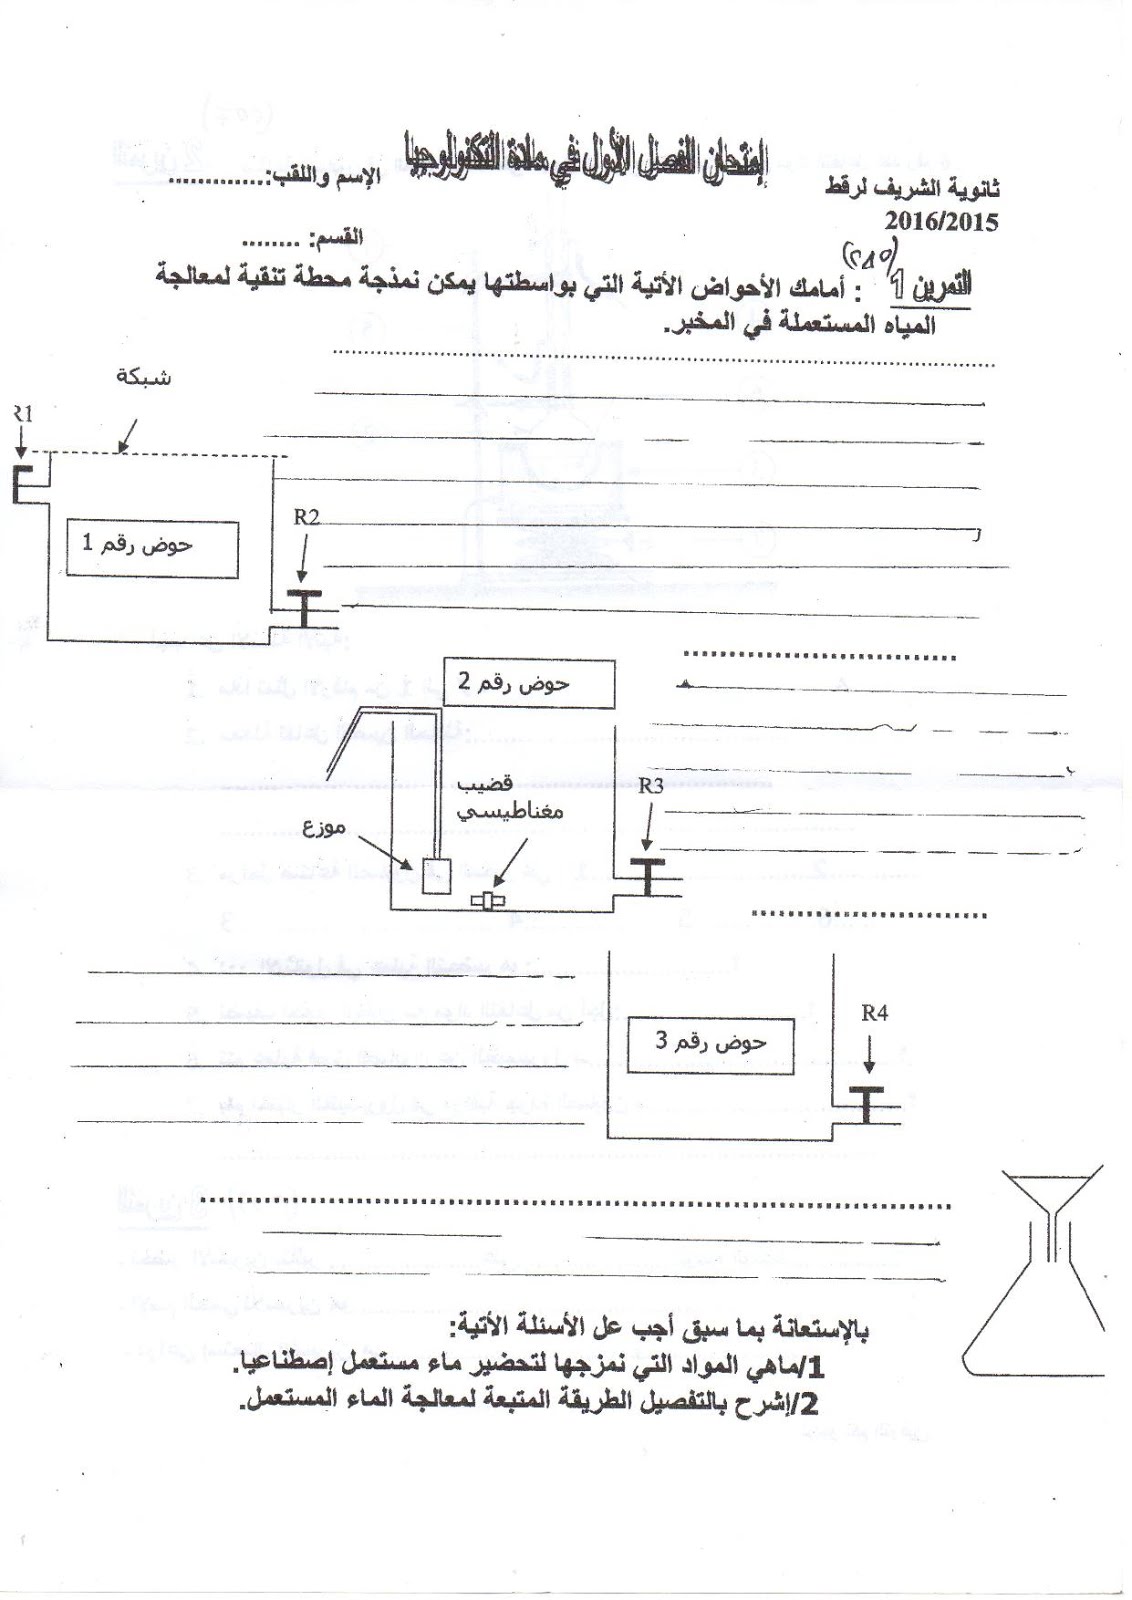 إمتحان الفصل الأول في مادة التكنولوجيا
ثانوية الشريف لرقط
الإسم واللقب:..............
2016/2015
القسم: ........
التمرين 1 : أمامك الأحواض الأتية التي بواسطتها يمكن نمذجة محطة تنقية لمعالجة
المياه المستعملة في المخبر.
شبكة
R1
R2
حوض رقم 1
حوض رقم 2
قضيب
مغناطيسي
موزع
R3
حوض رقم 3
R4
بالإستعانة بما سبق أجب عل الأسئلة الأتية:
1/ماهي المواد التي نمزجها لتحضير ماء مستعمل إصطناعيا.
2/إشرح بالتفصيل الطريقة المتبعة لمعالجة الماء المستعمل.